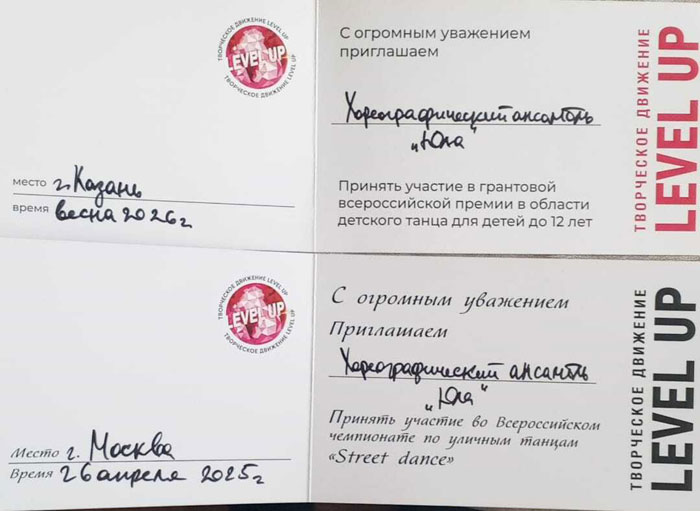 ТВОРЧЕСКОЕ ДВИЖЕНИЕ LEVEL UP
LEVEL UP
ТВОРЧЕСКОЕ ДВИЖЕНИЕ LEVEL UP
место г. Казань
время весна 2026 г
С огромным уважением
приглашаем
Хореографический ансамбль
„Юла"
Принять участие в грантовой
всероссийской премии в области
детского танца для детей до 12 лет
ТВОРЧЕСКОЕ ДВИЖЕНИЕ
LEVEL UP
ТВОРЧЕСКОЕ ДВИЖЕНИЕ LEVEL UP
LEVEL UP
ТВОРЧЕСКОЕ ДВИЖЕНИЕ LEVEL UP
Место г. Москва
Время 26 апреля 2025 г
С огромным уважением
Приглашаем
Хореографический ансамбль
„Юла"
Принять участие во Всероссийском
чемпионате по уличным танцам
«Street dance»
ТВОРЧЕСКОЕ ДВИЖЕНИЕ
LEVEL UP